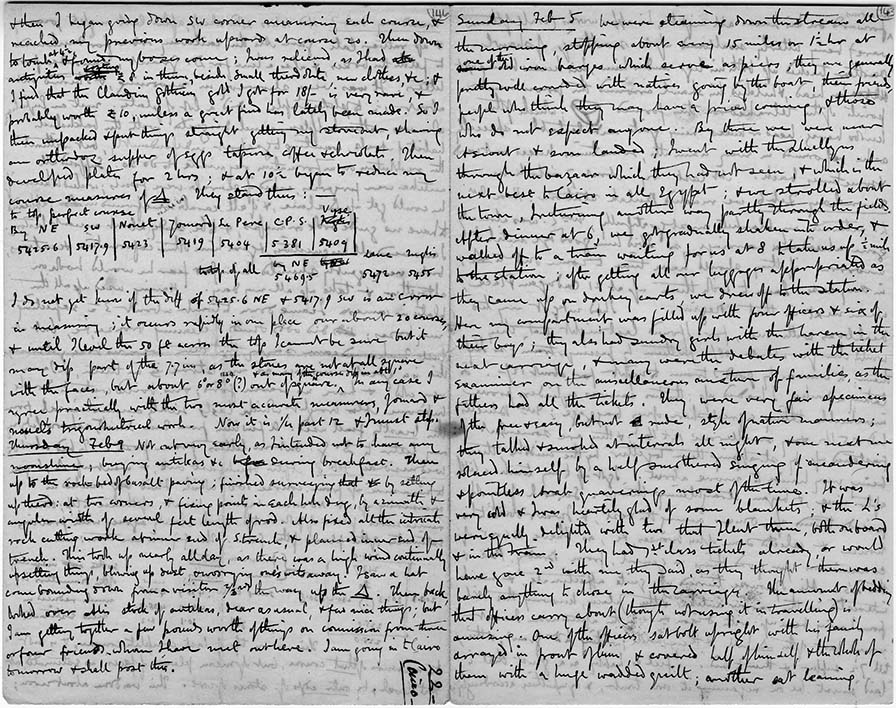 & then I began going down SW corner measuring each course, &
reached my previous work upward at course 20. Then down
to tombs, & found my boxes come; I was relieved, as I had
antiquities in them, beside small theodolite new clothes, &c; &
I find that the Claudius Gothicus gold I got for 18/- is very rare, &
probably worth £10, unless a great find has lately been made. So I
then unpacked & put things straight getting my stores out, & having
an orthodox supper of eggs tapioca, coffee & chocolate. Then
developed plates for 2 hrs, & at 10½ began to reduce my
course measures of △. They stand thus: —
to top perfect course
By NE | SW | Nouet | Jomard | Le Pere | C.P.S. | Vyse
5425.6 | 5417.9 | 5423 | 5419 | 5404 | 5381 | 5409
by NE
top of all 5469.5 5472 5455
I do not yet know if the diff of 5425.6 NE & 5417.9 SW is an error
in measuring; it occurs rapidly in one place over about 20 courses,
& until I level the 50 ft across the top I cannot be sure but it
may be a dip part of the 7.7 in, as the stones are not at all square
with the faces, but about 6° or 8° (?) out of square. In any case I
agree practically with the two most accurate measurers, Jomard &
Nouet's trigonometrical work. Now it is ¼ past 12 & I must stop.
Thursday Feb 9 Not out very early, as I intended not to have any
moonshine, buying antikas &c during breakfast. Then
up to the rock bed of basalt paving; finished surveying that by setting
up theod: at two corners & fixing points in each hole &c, by azimuth &
angular width of several feet length of rod. Also fixed all the intricate
rock cutting work at inner end of S. trench, & planned inner end of
trench. This took up nearly all day, as there was a high wind continually
upsetting things, blowing up dust & worrying one's eyes away. I saw a hat
come bounding down from a visitor ⅔rds the way up the △. Then back
looked over Ali's stock of antikas, dear as usual, & few nice things, but
I am getting together a few pounds worth of things on commission from three
or four friends whom I have met out here. I am going in to Cairo
tomorrow & shall post this.
22-
Cairo
Sunday Feb 5 We were steaming down the stream all
the morning, stopping about every 15 miles or 1½ hr at
one of the old iron barges which serve as piers; they are generally
pretty well crowded with natives going by the boat, their friends,
people who think they may have a friend coming, & those
who do not expect anyone. By three we were near
& Siout & soon landed; I went with the Lhuellyns
through the bazaar which they had not seen, & which is the
next best to Cairo in all Egypt; & we strolled about
the town, & returning another way partly through the fields.
After dinner at 6, we got gradually shaken into order, &
walked off to a train waiting for us at 8 to take us off ½ mile
to the station; after getting all our luggage appropriated as
they came up on donkey carts, we drove off to the station.
Here my compartment was filled up with four officers & six of
their boys; they also had sundry girls with the hareem in the
next carriage, & many were the debates with the ticket
examiner on the miscellaneous mixture of families, as the
fathers had all the tickets. They were very fair specimens
of the free & easy, but not rude, style of native manners;
they talked & smoked at intervals all night, & one next me
solaced himself by a half smothered singing of meandering
& pointless Arab quaverings most of the time. It was
very cold & I was heartily glad of some blankets, & the L's
were equally delighted with two that I lent them, both on board
& in the train. They had 1st class tickets already or would
have gone 2nd with me they said, as they thought there was
barely anything to choose in the carriage. The amount of bedding
that officers carry about (though not using it in travelling) is
amusing. One of the officers sat bolt upright with his family
arranged in front of him, & covered half of himself & the whole of
them with a huge wadded quilt; another sat leaning